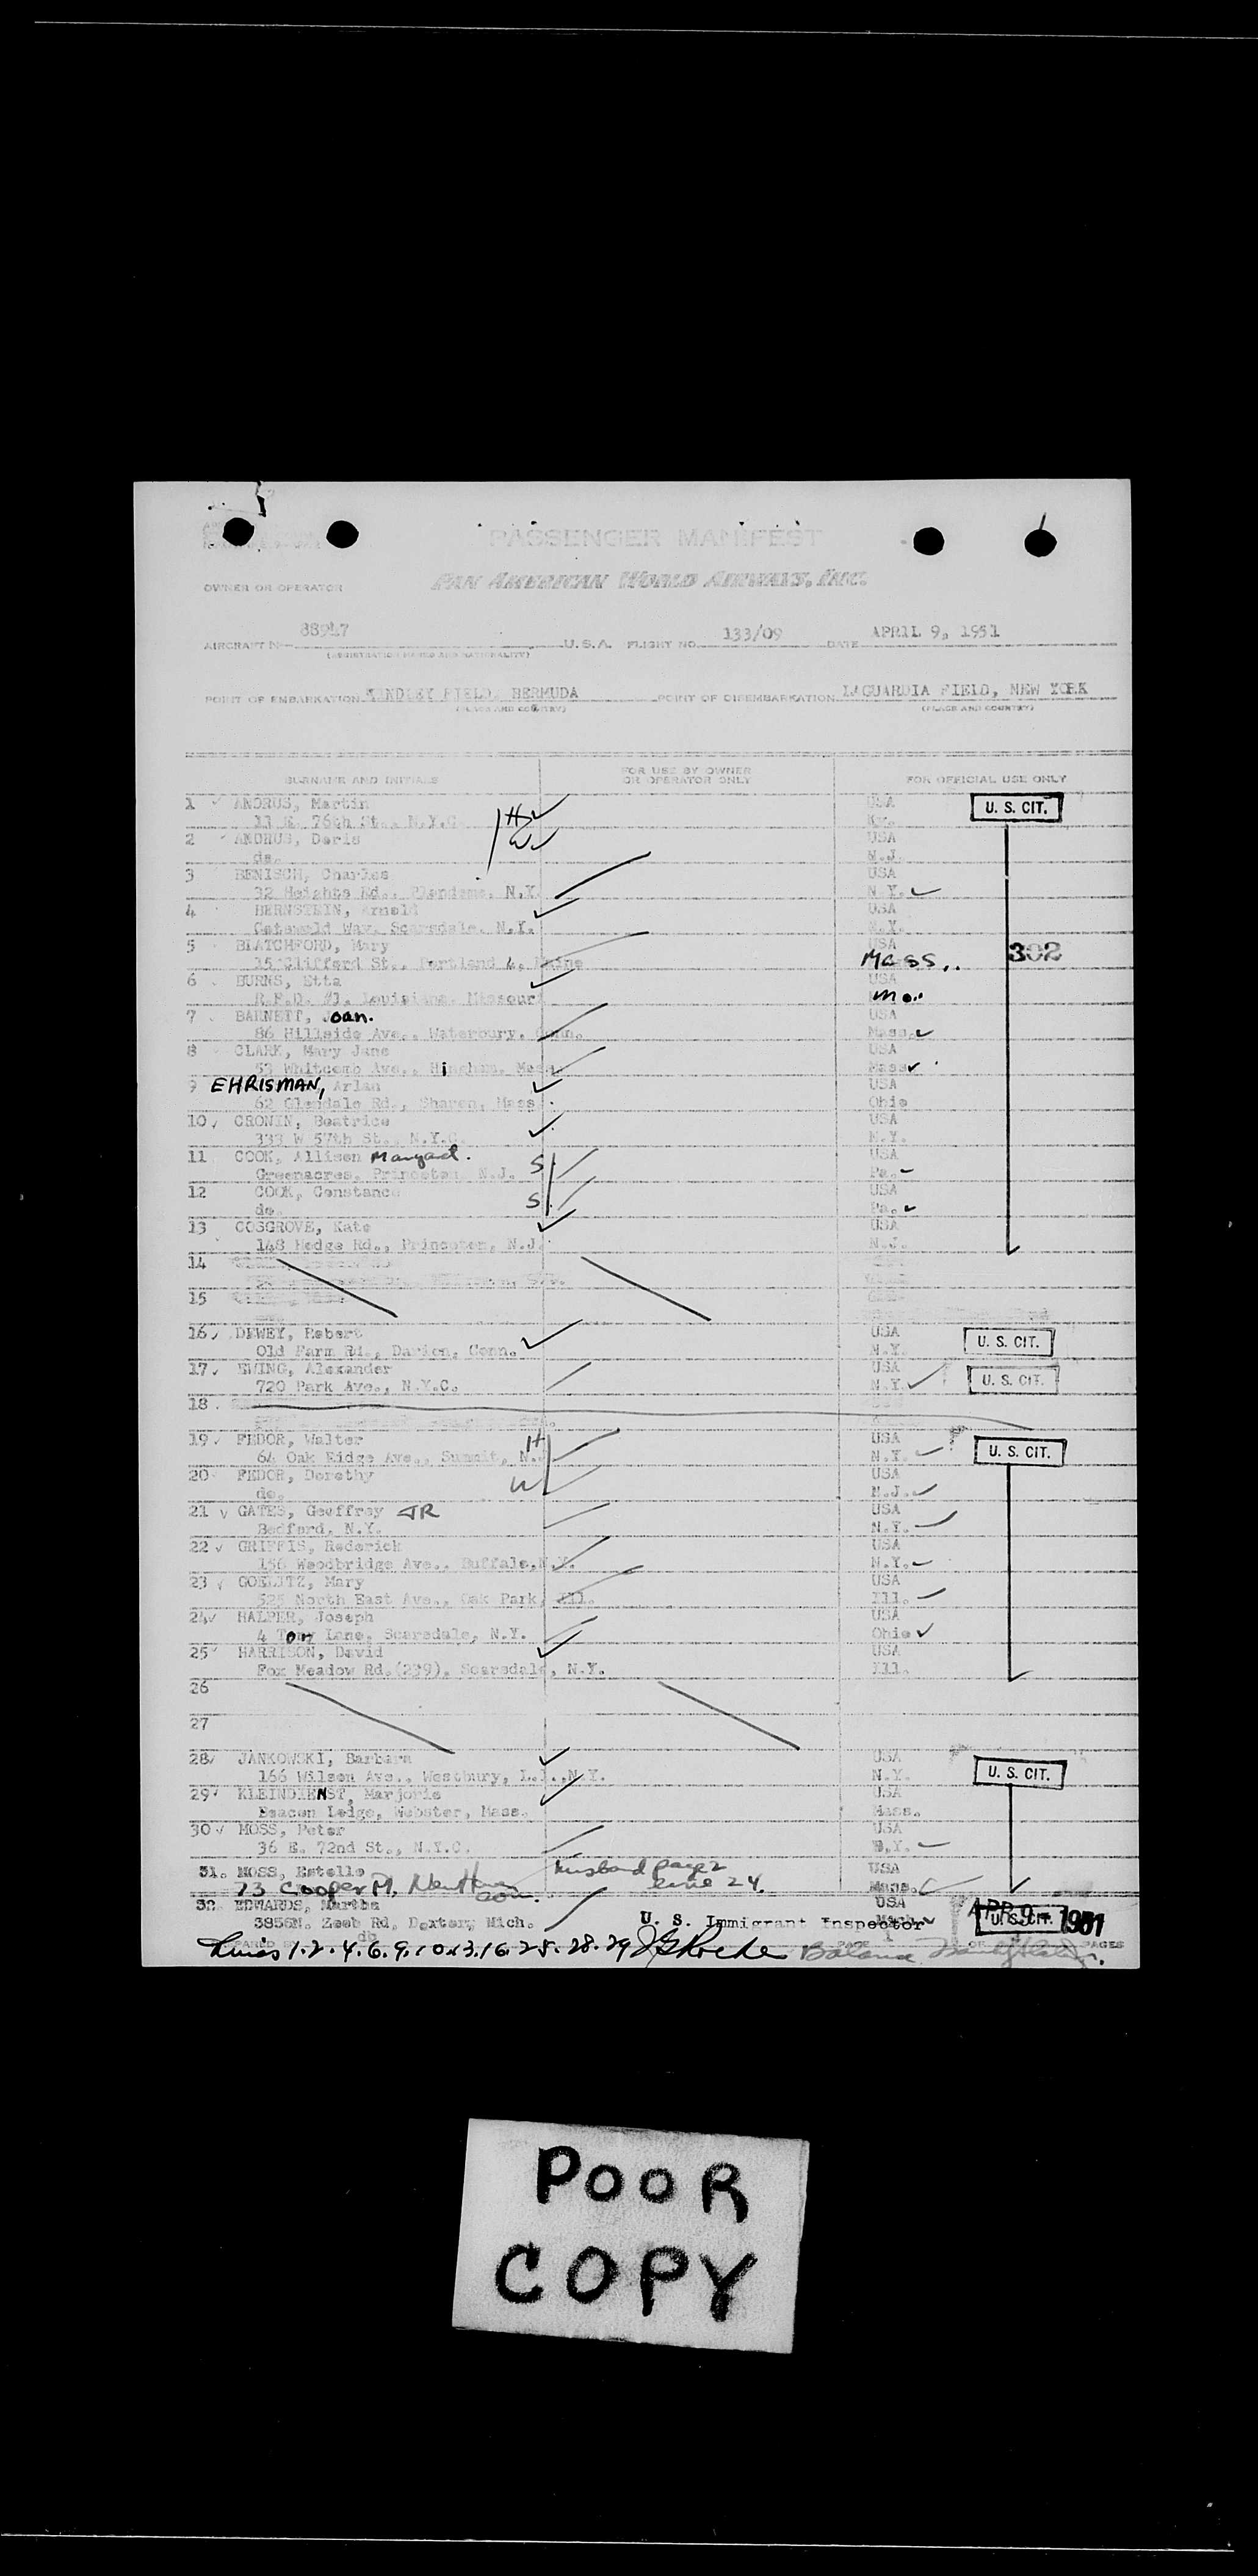 PASSENGER MANIFEST
OWNER OR OPERATOR PAN AMERICAN WORLD AIRWAYS, INC.
AIRCRAFT 88947 U.S.A. FLIGHT NO. 133/09 DATE APRIL 9, 1951
(REGISTRATION MARKS AND NATIONALITY)
POINT OF EMBARKATION KINDLEY FIELD, BERMUDA POINT OF DISEMBARKATION LAGUARDIA FIELD, NEW YORK
(PLACE AND COUNTRY) (PLACE AND COUNTRY)
SURNAME AND INITIALS FOR USE BY OWNER OR OPERATOR ONLY FOR OFFICIAL USE ONLY
1 ANDRUS, Martin H USA U. S. CIT.
11 E. 76th St., N.Y.C. Ky.
2 ANDRUS, Doris W USA
do. N.J.
3 BENISCH, Charles USA
32 Heights Rd., Plandome, N.Y. N.Y.
4 BERNSTEIN, Arnold USA
Cotswold Way, Scarsdale, N.Y. N.Y.
5 BLATCHFORD, Mary USA 302
15 Clifford St., Portland 4, Maine Mass.
6 BURNS, Etta USA
R.F.D. #1, Louisiana, Missouri Mo.
7 BARNETT, Joan. USA
86 Hillside Ave., Waterbury, Conn. Mass.
8 CLARK, Mary Jane USA
53 Whitcomb Ave., Hingham, Mass. Mass
9 EHRISMAN, Arlan USA
62 Glendale Rd., Sharon, Mass. Ohio
10 CRONIN, Beatrice USA
333 W 57th St., N.Y.C. N.Y.
11 COOK, Allison Margaret. S USA
Greenacres, Princeton, N.J. Pa.
12 COOK, Constance S USA
do. Pa.
13 COSGROVE, Kate USA
148 Hodge Rd., Princeton, N.J. N.J.
14
15
16 DEWEY, Robert USA U. S. CIT.
Old Farm Rd., Darien, Conn. N.Y.
17 EWING, Alexander USA U. S. CIT.
720 Park Ave., N.Y.C. N.Y.
18
19 FEDOR, Walter H USA U. S. CIT.
64 Oak Ridge Ave., Summit, N.J. N.Y.
20 FEDOR, Dorothy W USA
do. N.J.
21 GATES, Geoffrey JR USA
Bedford, N.Y. N.Y.
22 GRIFFIS, Roderick USA
156 Woodbridge Ave., Buffalo, N.Y. N.Y.
23 GOELITZ, Mary USA
525 North East Ave., Oak Park, Ill. Ill.
24 HALPER, Joseph USA
4 Lane, Scarsdale, N.Y. Ohio
25 HARRISON, David USA
Fox Meadow Rd.(239), Scarsdale, N.Y. Ill.
26
27
28 JANKOWSKI, Barbara USA U. S. CIT.
166 Wilson Ave., Westbury, L.I., N.Y. N.Y.
29 KLEINDIENST, Marjorie USA
Beacon Ledge, Webster, Mass. Mass.
30 MOSS, Peter USA
36 E. 72nd St., N.Y.C. N.Y.
31. MOSS, Estelle husband page 2 USA
73 Cooper Pl. New Haven Conn. line 24. Mass.
32. EDWARDS, Martha USA APR 9 - 1951
3856N. Zeeb Rd, Dexter, Mich. U. S. Immigrant Inspector Mich. U. S. CIT.
db PAGE 1 OF PAGES
Lines 1.2.4.6.9.10.13.16.25.28.29 Balance
POOR
COPY